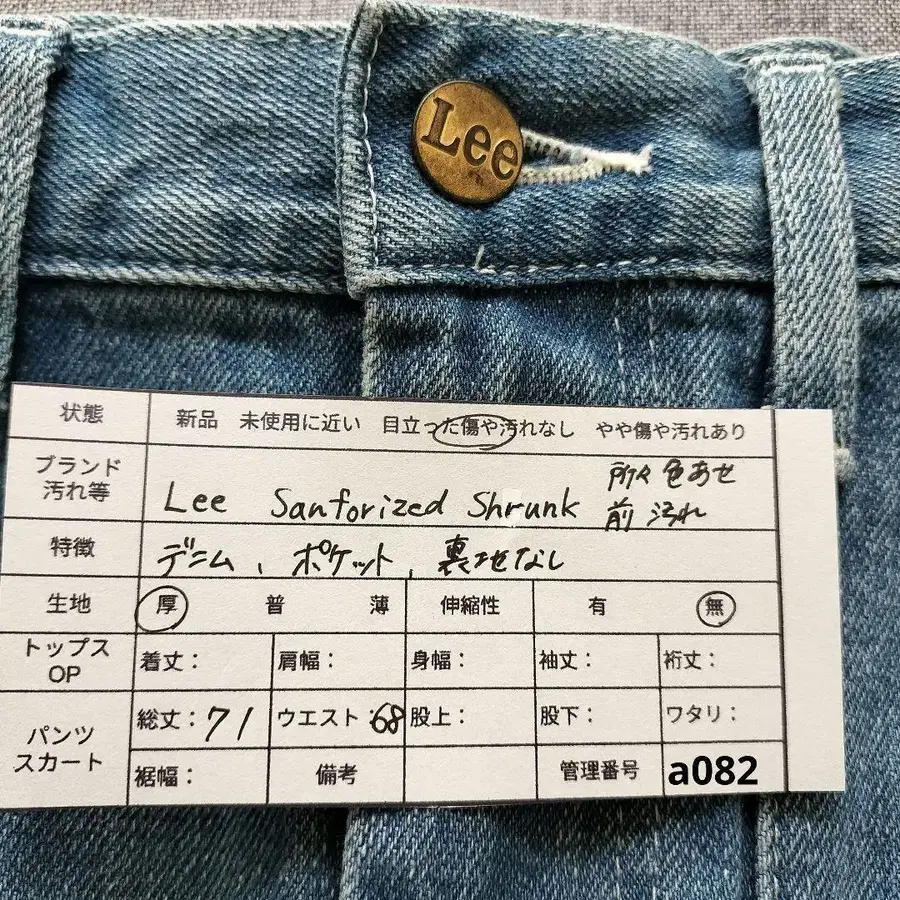 Lee
状態 新品 未使用に近い 目立った傷や汚れなし やや傷や汚れあり
ブランド 汚れ等 Lee Sanforized Shrunk 所々色あせ 前 汚れ
特徴 デニム、ポケット、裏地なし
生地 厚 普 薄 伸縮性 有 無
トップス OP 着丈： 肩幅： 身幅： 袖丈： 裄丈：
パンツ スカート 総丈：71 ウエスト：68 股上： 股下： ワタリ：
裾幅： 備考 管理番号 a082